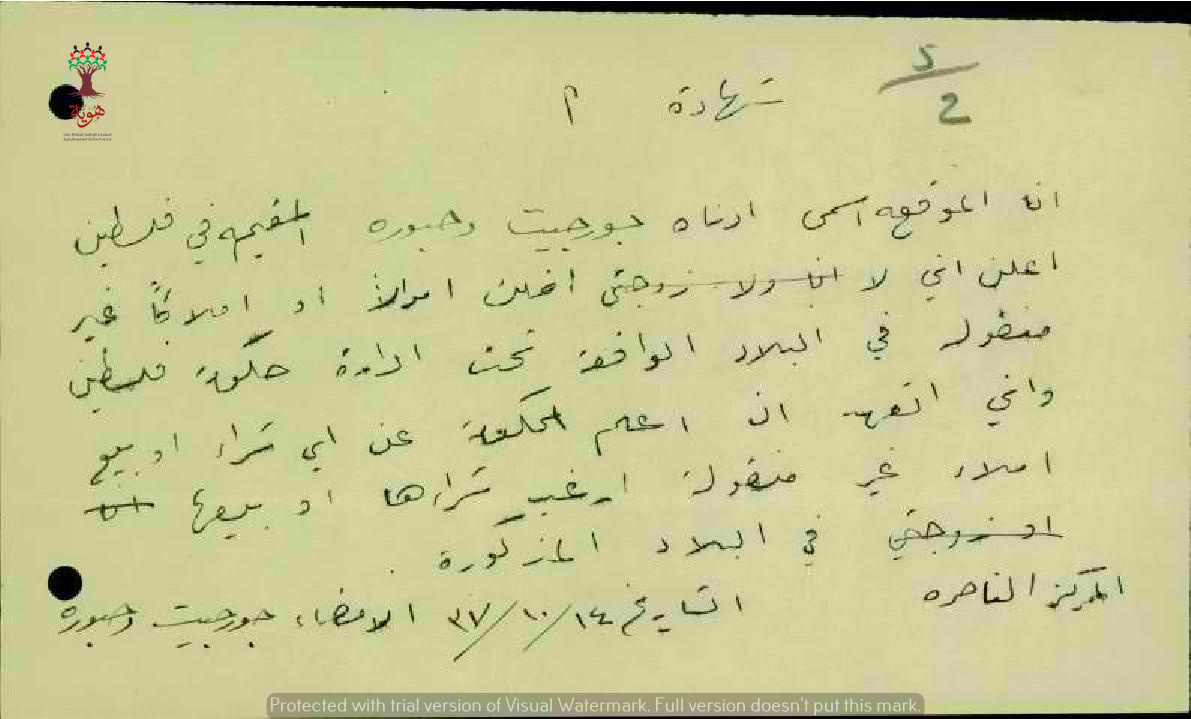 5/2
شهادة م
انا الموقعه اسمى ادناه جورجيت دحبوره المقيمه في فلسطين
اعلن اني لا انا ولا زوجتي نملك اموالاً او املاكاً غير
منقوله في البلاد الواقعة تحت ادارة حكومة فلسطين
واني اتعهد ان اعلم الحكومة عن اي شراء او بيع
املاك غير منقولة ارغب شراءها او بيعها انا
او زوجتي في البلاد المذكورة .
المركز الناصره التاريخ ١٤/١٠/٣٧ الامضاء جورجيت دحبوره
هوية
Protected with trial version of Visual Watermark. Full version doesn't put this mark.